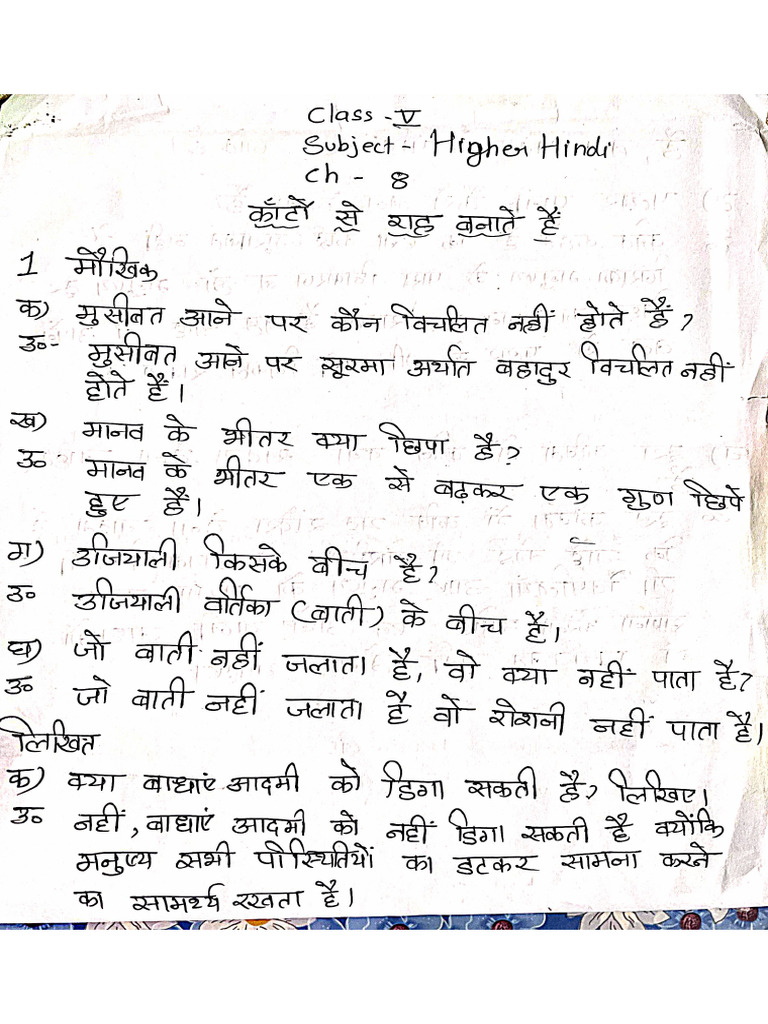 Class - V
Subject - Higher Hindi
Ch - 8
काँटों से राह बनाते हैं
1 मौखिक
क) मुसीबत आने पर कौन विचलित नहीं होते हैं?
उ०- मुसीबत आने पर सूरमा अर्थात बहादुर विचलित नहीं
होते हैं।
ख) मानव के भीतर क्या छिपा है?
उ० मानव के भीतर एक से बढ़कर एक गुण छिपे
हुए हैं।
ग) उजियाली किसके बीच है?
उ० उजियाली वर्तिका (बाती) के बीच है।
घ) जो बाती नहीं जलाता है, वो क्या नहीं पाता है?
उ० जो बाती नहीं जलाता है वो रोशनी नहीं पाता है।
लिखित
क) क्या बाधाएं आदमी को डिगा सकती है? लिखिए।
उ० नहीं, बाधाएं आदमी को नहीं डिगा सकती है क्योंकि
मनुष्य सभी परिस्थितियों का डटकर सामना करने
का सामर्थ्य रखता है।